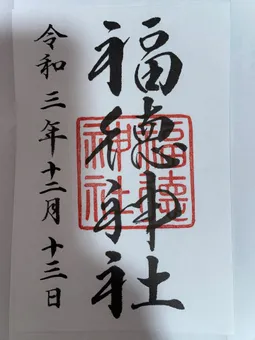 福徳神社
福德神社
令和三年十二月十三日